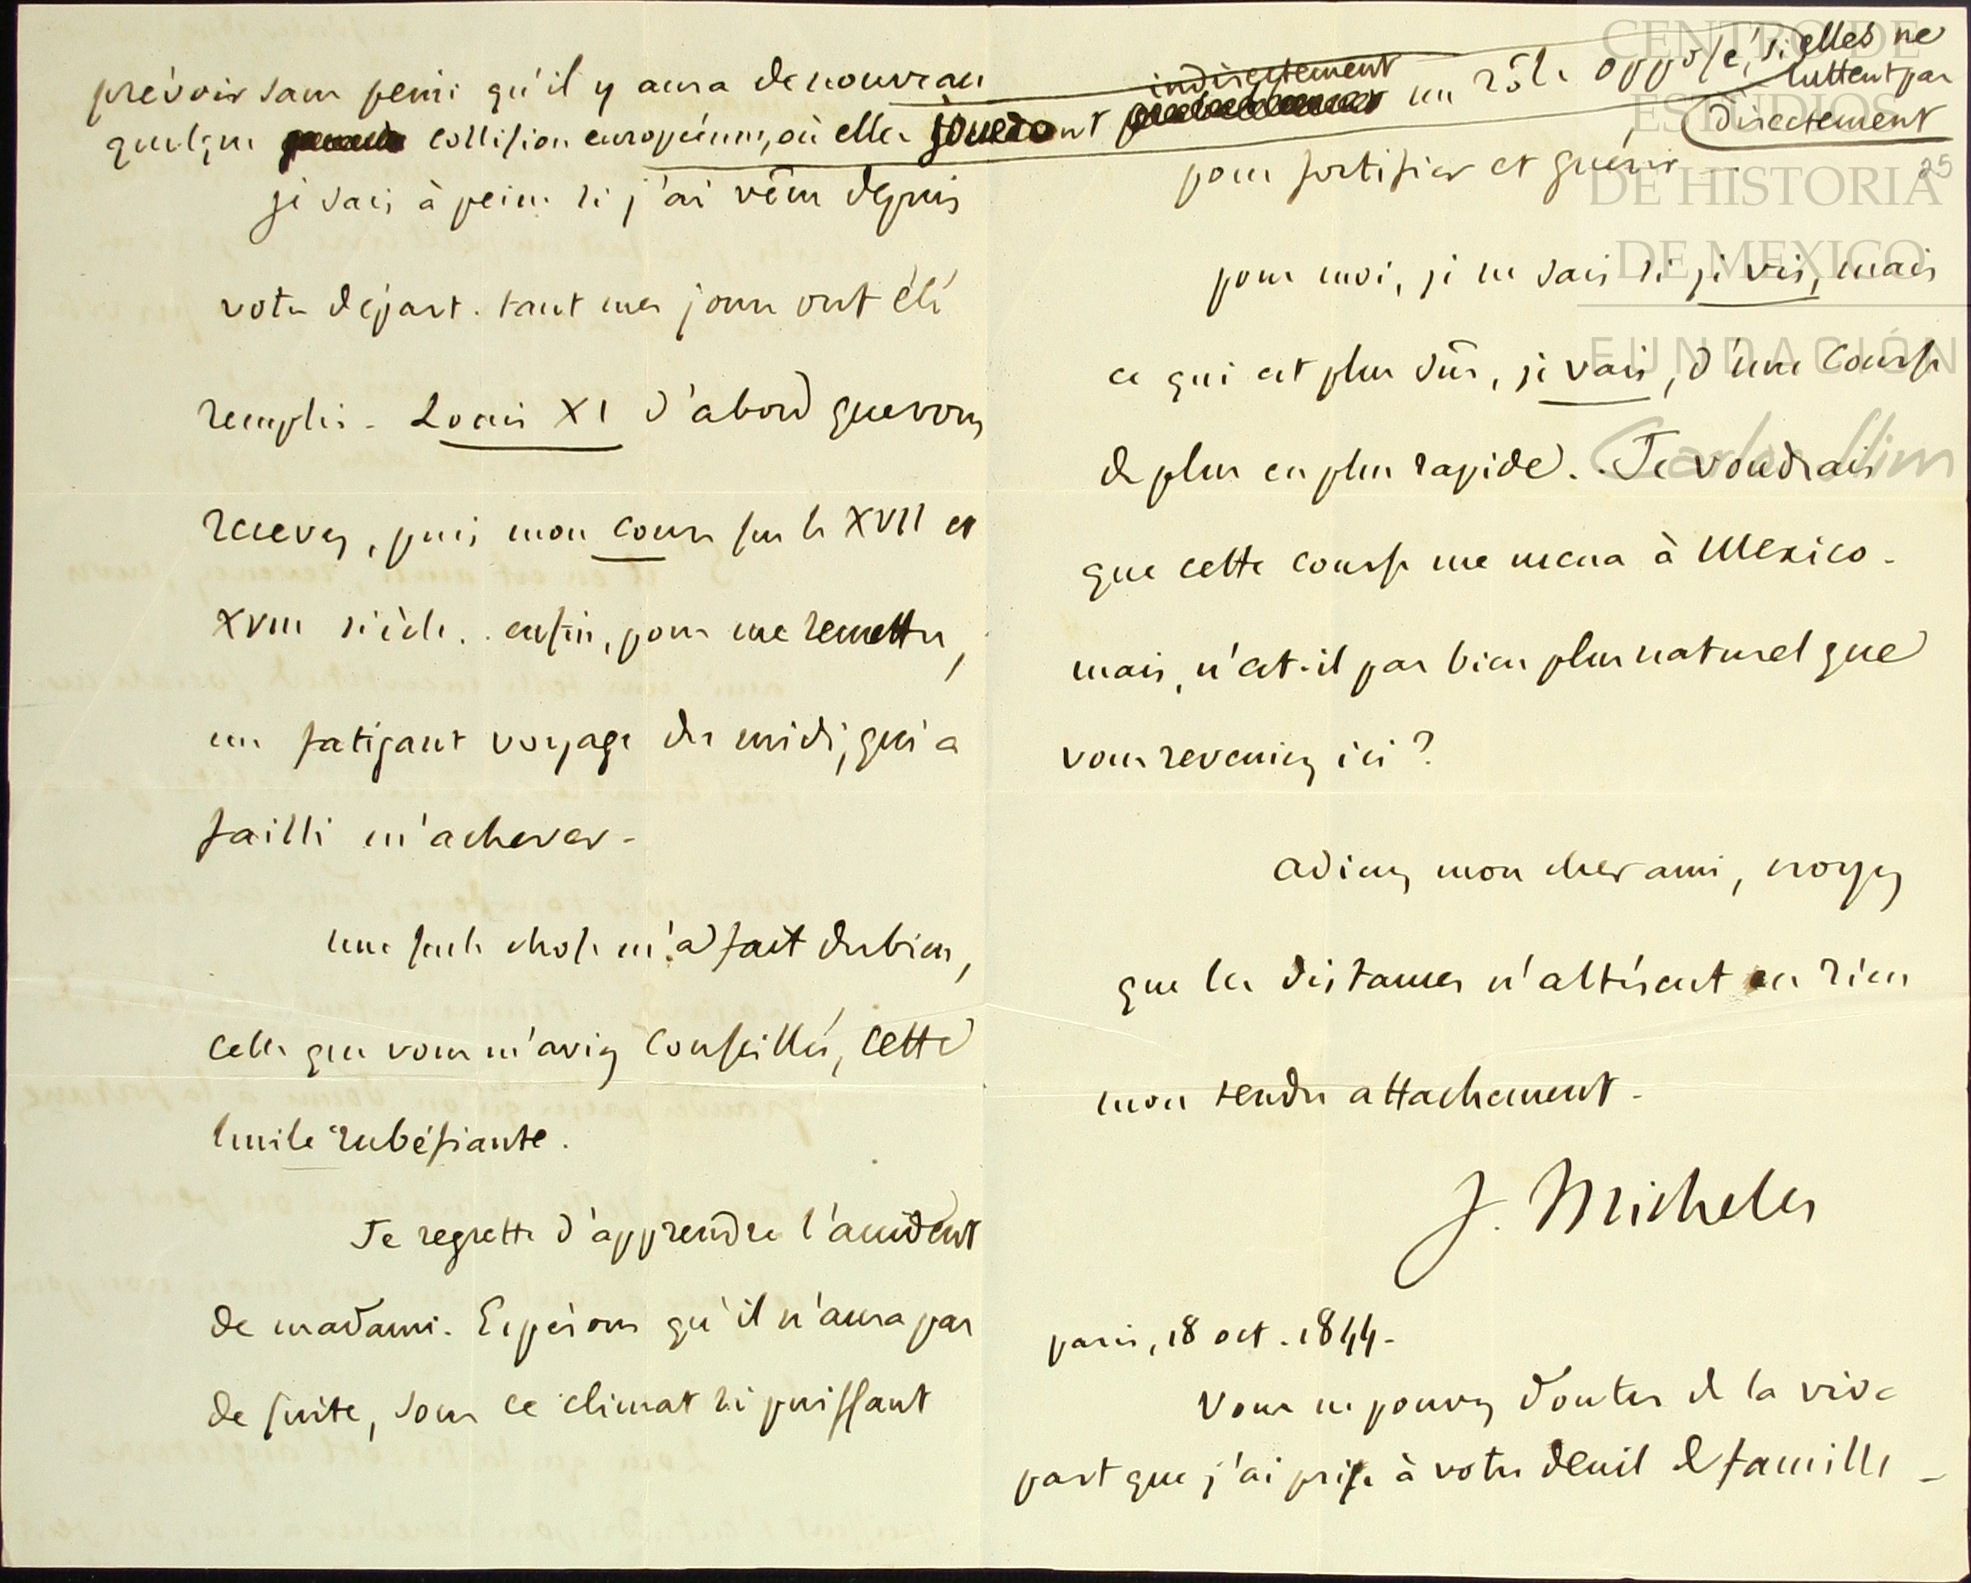 prévoir sans peine qu'il y aura de nouveau
quelque collision européenne, où elles joueront indirectement un rôle opposé, si elles ne
luttent pas
directement
je sais à peine si j'ai vécu depuis
votre départ. tant mes jours ont été
remplis - Louis XI d'abord que vous
recevez, puis mon cours sur le XVII et
XVIII siècle.. enfin, pour me remettre,
un fatigant voyage du midi, qui a
failli m'achever -
une seule chose m'a fait du bien,
celle que vous m'aviez conseillée, cette
huile rubéfiante.
Je regrette d'apprendre l'accident
de madame. Espérons qu'il n'aura pas
de suite, sous ce climat si puissant
25
pour fortifier et guérir -
pour moi, je ne sais si je vis, mais
ce qui est plus sûr, je vais, d'une course
de plus en plus rapide. . Je voudrais
que cette course me mena à Mexico -
mais, n'est-il pas bien plus naturel que
vous reveniez ici ?
adieu mon cher ami, croyez
que les distances n'altèrent en rien
mon tendre attachement -
J. Michelet
paris, 18 oct. 1844 -
Vous ne pouvez douter de la vive
part que j'ai prise à votre deuil de famille -
CENTRO DE
ESTUDIOS
DE HISTORIA
DE MEXICO
FUNDACIÓN
Carlos Slim